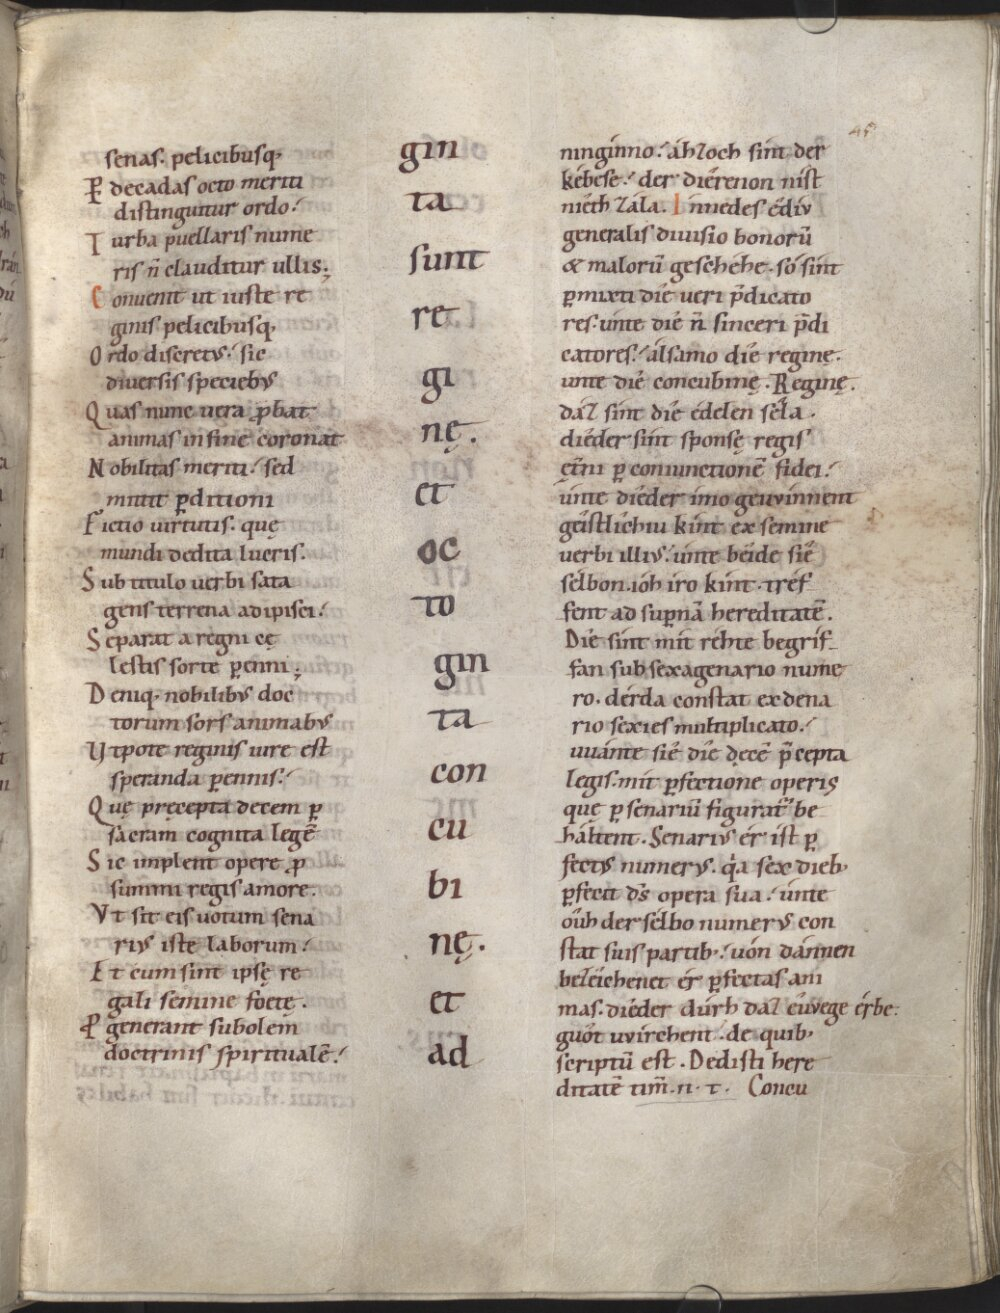 45
senas. pelicibusq;
P̄ decadas octo meriti
distinguitur ordo.
Turba puellaris nume
ris n̄ clauditur ullis;
Conuenit ut iuste re
ginis pelicibusq;
Ordo discretus. sic
diuersis speciebus
Quas nunc uera p̄bat
animas in fine coronat
Nobilitas meriti. sed
mittit p̄ditioni
Fictio uirtutis. quę
mundi dedita lucris.
Sub titulo uerbi sata
gens terrena adipisci.
Separat a regni cę
lestis sorte p̄enni;
Deniq; nobilibus doc
torum sors animabus
Utpote reginis iure est
speranda p̄ennis.
Quę pręcepta decem p̄
sacram cognita legē
Sic implent opere p̄
summi regis amore.
Vt sit eis uotum sena
rius iste laborum.
Et cum sint ipsę re
gali semine foetę.
P̄generant subolem
doctrinis spiritualē.
gin
ta
sunt
re
gi
nę.
et
oc
to
gin
ta
con
cu
bi
nę.
et
ad
ninginno. áb ꝛoch sint der
kébese. der dîerenon nist
nieth zala. Innedes êdiu
generalis diuisio bonorū
& malorū geschéhe. so sint
p̄mixti díe ueri p̄dicato
res. unte díe n̄ sinceri p̄di
catores. álsamo díe regine.
unte díe concubinę. Reginę.
daz sint díe édelen séla.
díeder sint sponsę regis
ęt̄ni p̄ coniunctionē fidei.
únte díeder imo geuvinnent
geistlichiu kint ex semine
uerbi illius. únte béide sié
selbon. ióh íro kint. tréf
fent ad sup̄nā hereditatē.
Díe sint mit réhte begrif
fan sub sexagenario nume
ro. dérda constat ex dena
rio sexies multiplicato.
uuánte síe díe decē p̄cepta
legis. mit p̄fectione operis
quę p̄ senariū figurat᷑ be
háltent. Senarius ér ist p̄
fectus numerus. q̇a sex dieb;
p̄fecit d̄s opera sua. únte
oûh der sélbo numerus con
stat suis partib;. uón dánnen
bezeichenet ér p̄fectas ani
mas. díeder dúrh daz êuuege érbe.
guôt uuirchent. de quib;
scriptū est. Dedisti here
ditatē tim̄. n. t. Concu